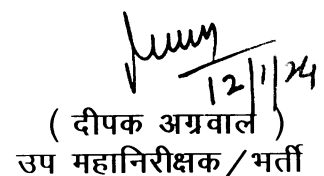 12/1/24
( दीपक अग्रवाल )
उप महानिरीक्षक / भर्ती